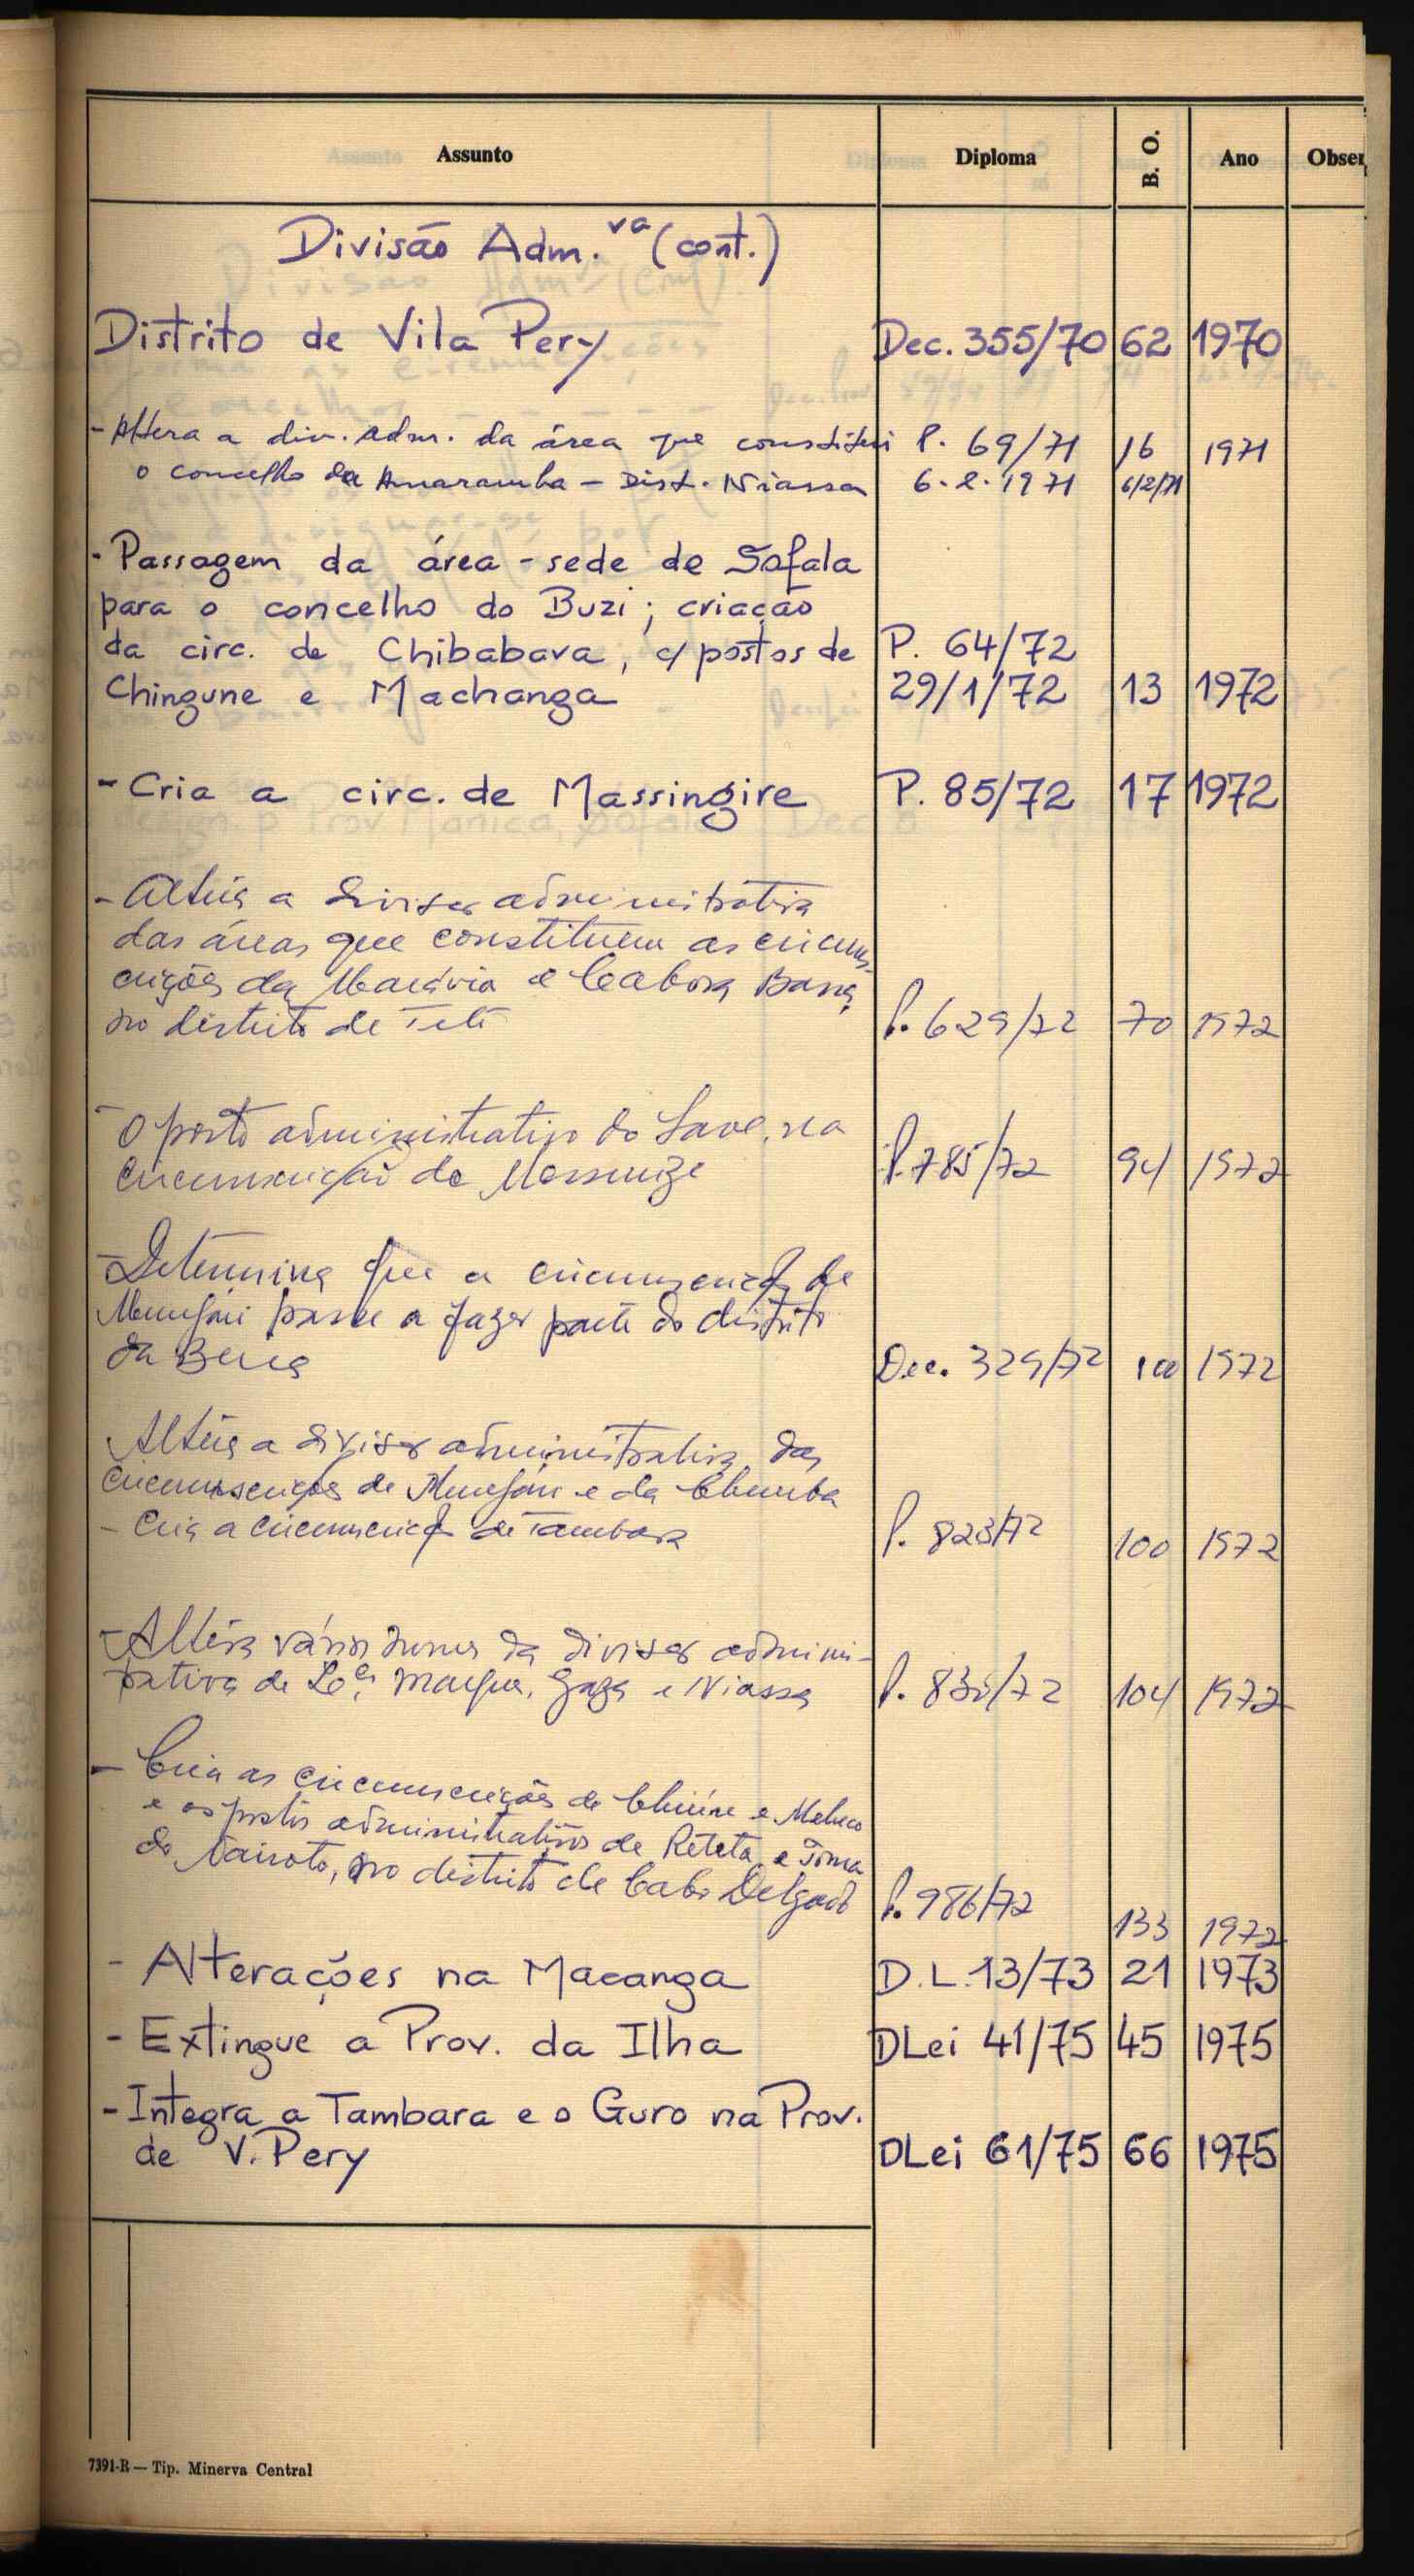 Assunto Diploma B. O. Ano Obser
Divisão Adm.va (cont.)
Distrito de Vila Pery Dec. 355/70 62 1970
- Altera a div. adm. da área que constitui P. 69/71 16 1971
o concelho da Amaramba - Dist. Niassa 6.2.1971 6/2/71
- Passagem da área-sede de Sofala
para o concelho do Buzi; criação
da circ. de Chibabava, c/ postos de P. 64/72
Chingune e Machanga 29/1/72 13 1972
- Cria a circ. de Massingire P. 85/72 17 1972
- Altera a divisão administrativa
das áreas que constituem as circuns-
crições da Marávia e Cabora Bassa
no distrito de Tete P. 629/72 70 1972
- O posto administrativo do Save, na
circunscrição de Mossurize P. 785/72 94 1972
- Determina que a circunscrição de
Mungári passe a fazer parte do distrito
da Beira Dec. 329/72 100 1972
Altera a divisão administrativa das
circunscrições de Mungári e da Chemba
- Cria a circunscrição de Tambara P. 823/72 100 1972
- Altera vários da divisão adminis-
trativa de Lço. Marques, Gaza e Niassa P. 104 1972
- Cria as circunscrições de Chiúre e Meluco
e os postos administrativos de e
do Nairoto, no distrito de Cabo Delgado P. 986/72 133 1972
- Alterações na Macanga D.L. 13/73 21 1973
- Extingue a Prov. da Ilha DLei 41/75 45 1975
- Integra a Tambara e o Guro na Prov.
de V. Pery DLei 61/75 66 1975
7391-R — Tip. Minerva Central